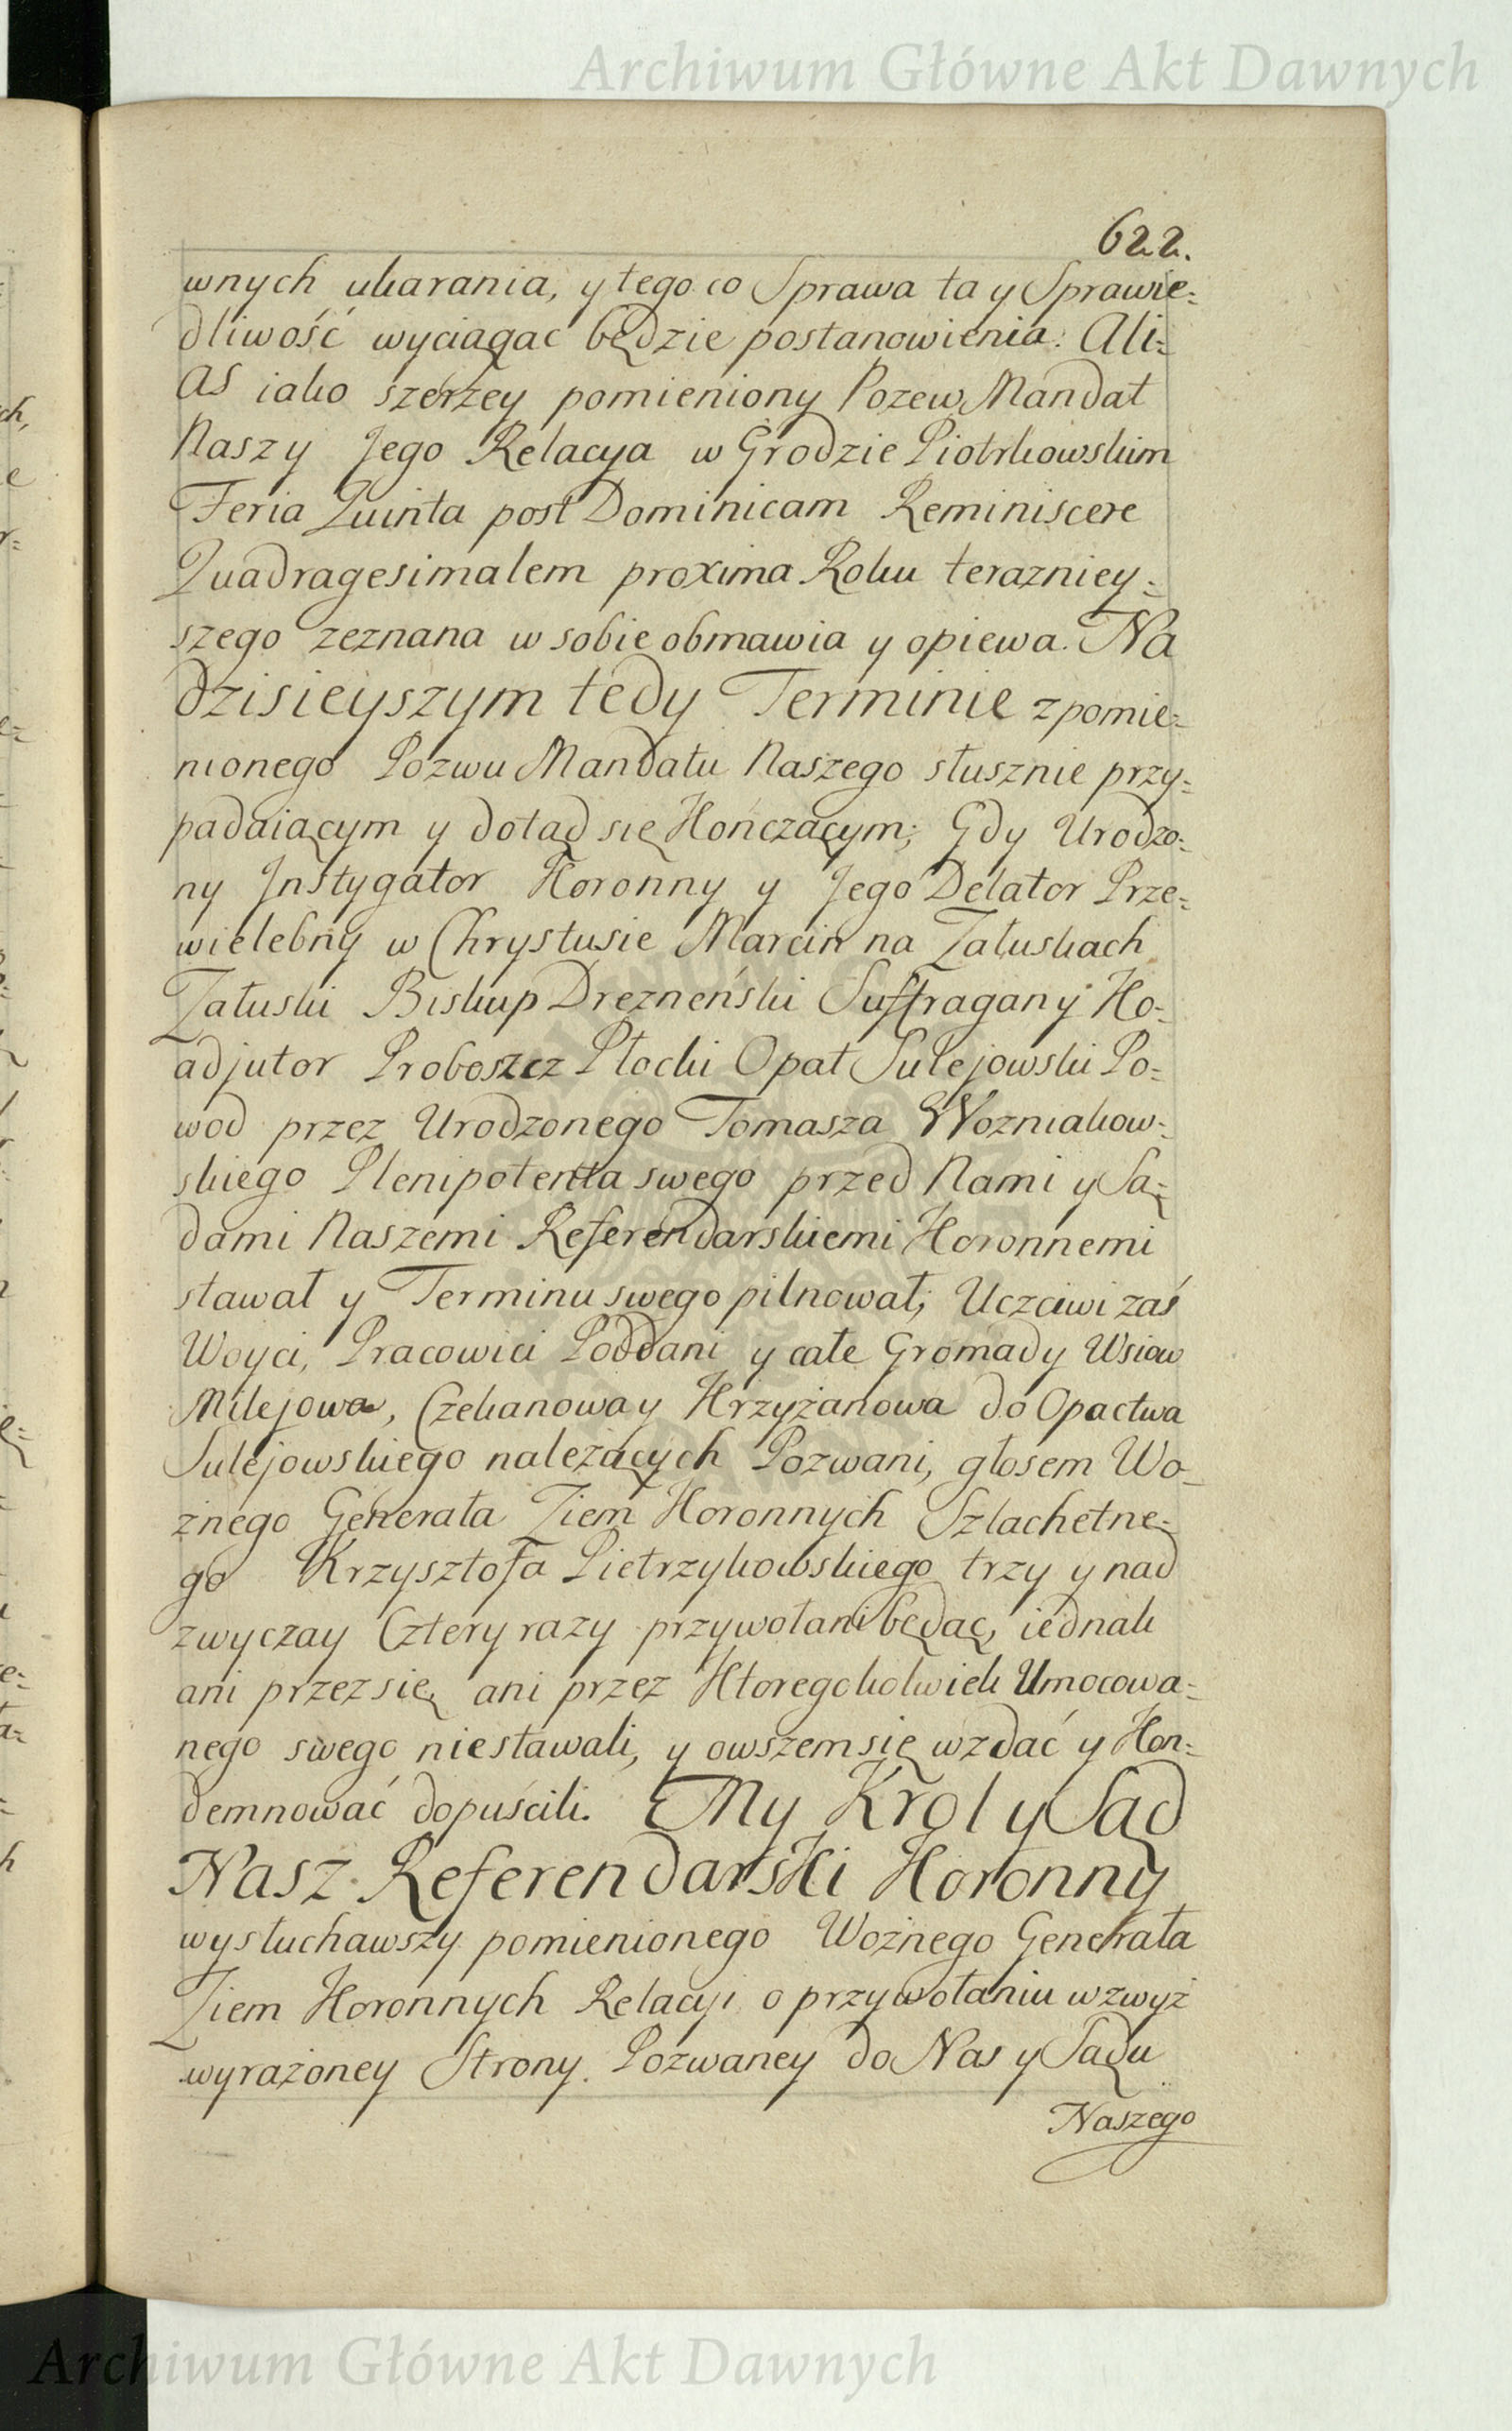 Archiwum Główne Akt Dawnych
622.
wnych ukarania, y tego co Sprawa ta y Sprawie=
dliwość wyciągac będzie postanowienia: Ali=
as iako szerzey pomieniony Pozew Mandat
Nasz y Jego Relacya w Grodzie Piotrkowskim
Feria Quinta post Dominicam Reminiscere
Quadragesimalem proxima Roku terazniey=
szego zeznana w sobie obmawia y opiewa. Na
dzisieyszym tedy Terminie z pomie=
nionego Pozwu Mandatu Naszego słusznie przy=
padaiącym y dotąd się Kończącym; Gdy Urodzo=
ny Jnstygator Koronny y Jego Delator Prze=
wielebny w Chrystusie Marcin na Załuskach
Załuski Biskup Drezneński Suffragan y Ko=
adjutor Proboszcz Płocki Opat Sulejowski Po=
wod przez Urodzonego Tomasza Wozniakow=
skiego Plenipotenta swego przed Nami y Są=
dami Naszemi Referendarskiemi Koronnemi
stawał y Terminu swego pilnował; Uczciwi zaś
Woyci, Pracowici Poddani y całe Gromady Wsiow
Milejowa, Czekanowa y Krzyżanowa do Opactwa
Sulejowskiego należących Pozwani, głosem Wo=
żnego Generała Ziem Koronnych Szlachetne=
go Krzysztofa Pietrzykowskiego trzy y nad
zwyczay Cztery razy przywołani będąc, iednak
ani przez się, ani przez Ktoregokolwiek Umocowa=
nego swego niestawali, y owszem się wzdać y Kon=
demnować dopuścili. My Krol y Sąd
Nasz Referendarski Koronny
wysłuchawszy pomienionego Woźnego Generała
Ziem Koronnych Relacyi o przywołaniu wzwyż
wyrażoney Strony Pozwaney do Nas y Sądu
Naszego
Archiwum Główne Akt Dawnych